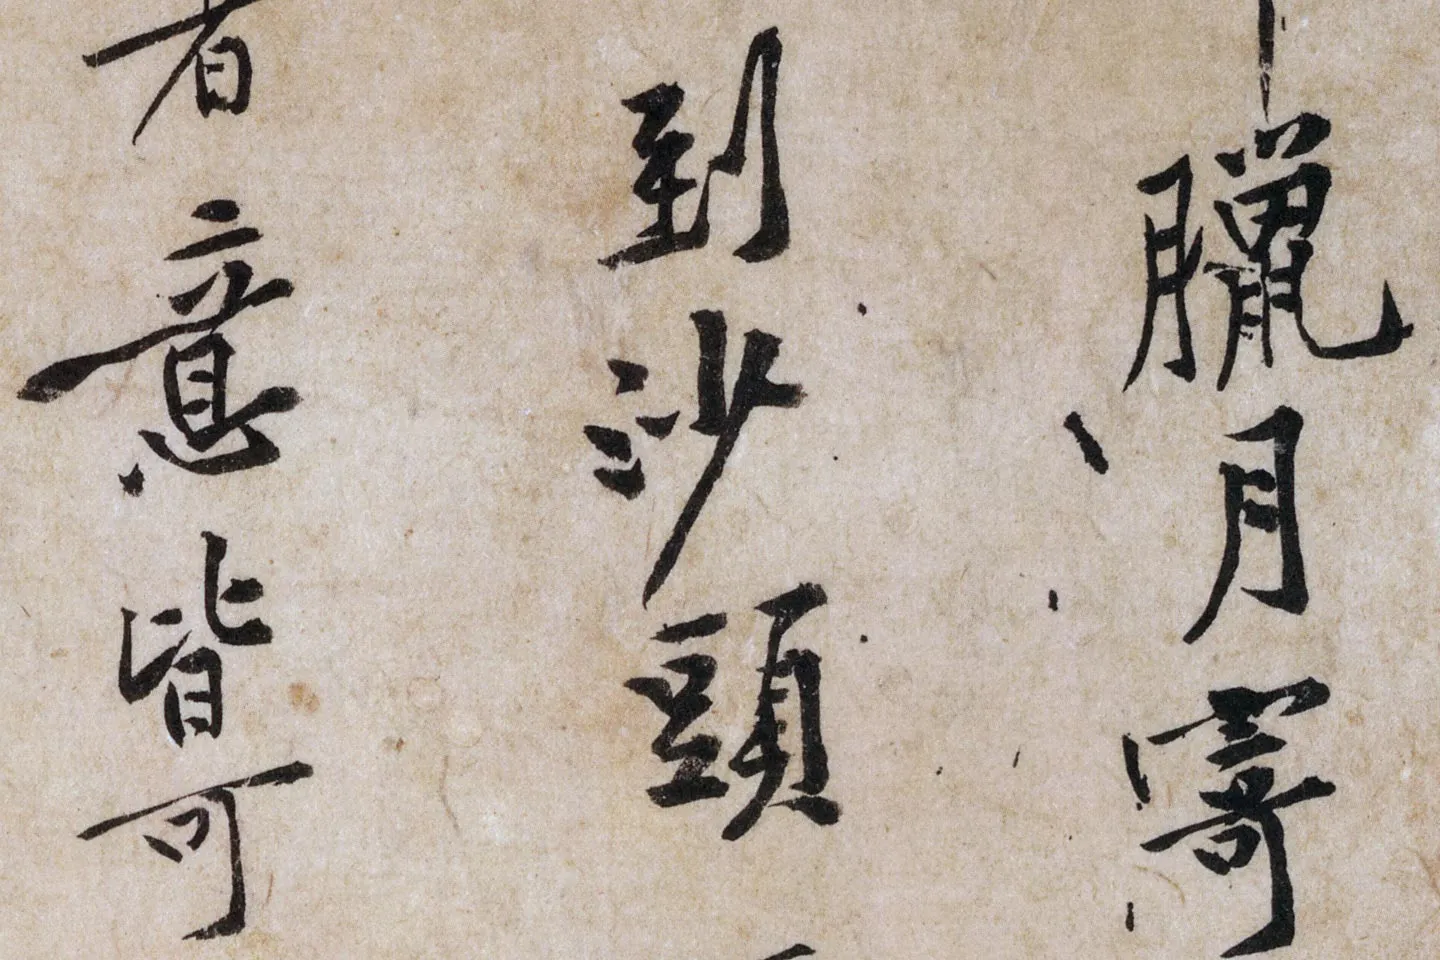 臘月寄
到沙頭
者意皆可